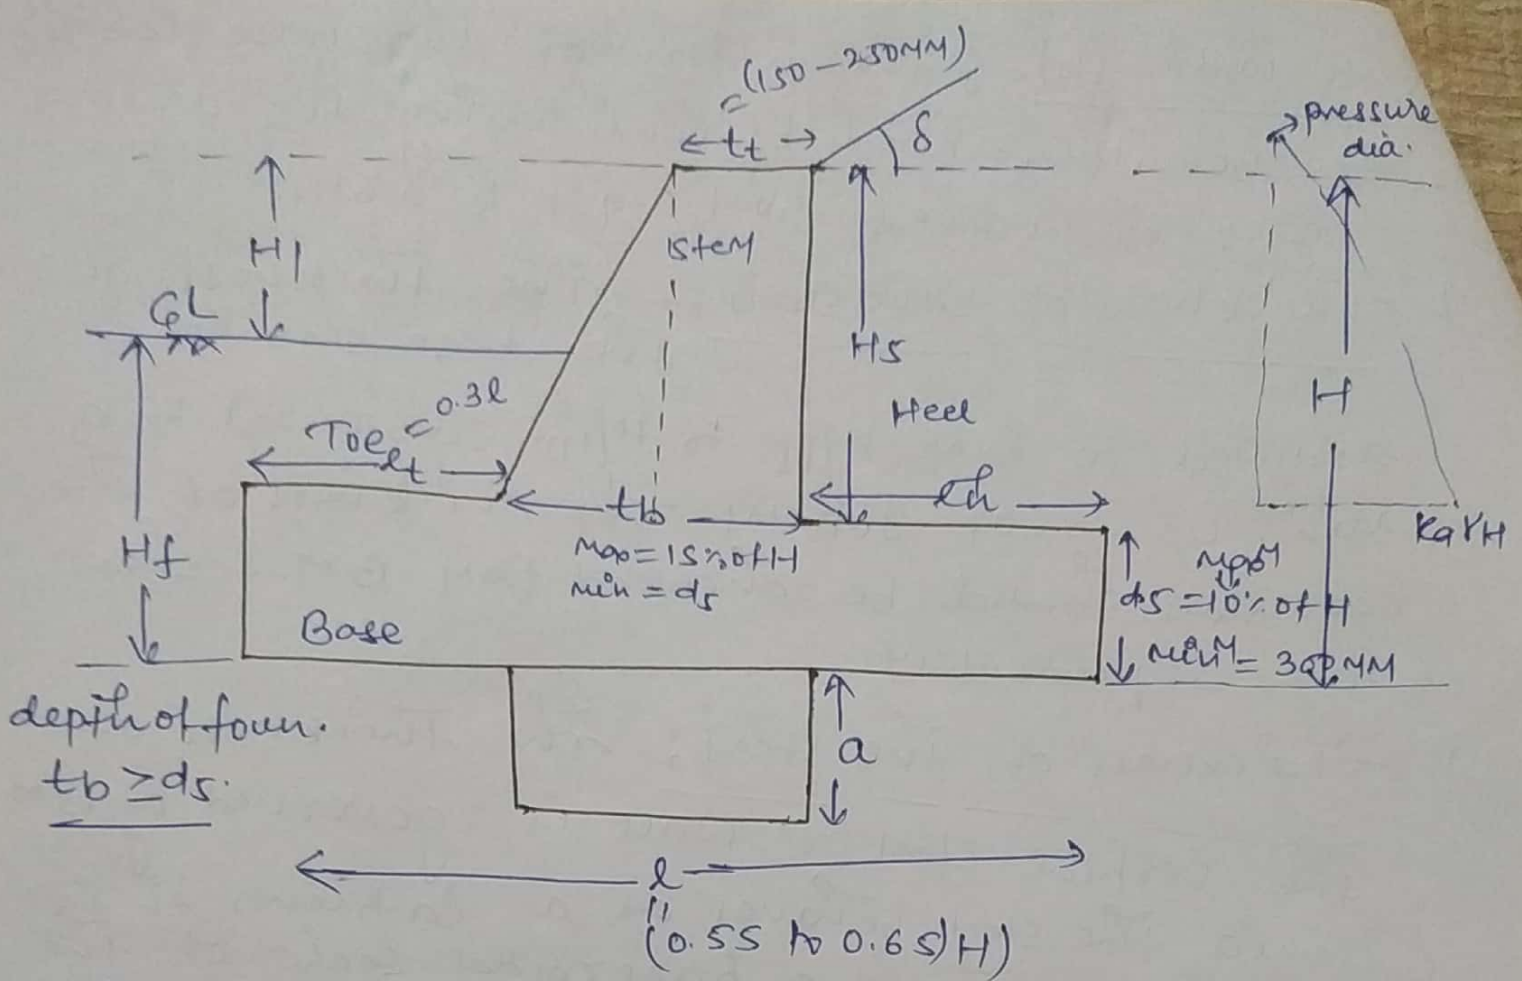 =(150-250MM)
tt
δ
pressure
dia.
H1
Stem
GL
Hs
H
Toe = 0.3l
lt
Heel
tb
lh
KaγH
Hf
Max = 15% of H
min = ds
ds = 10% of H
Base
depth of foun.
tb ≥ ds.
a
l
"
(0.55 to 0.65)H)